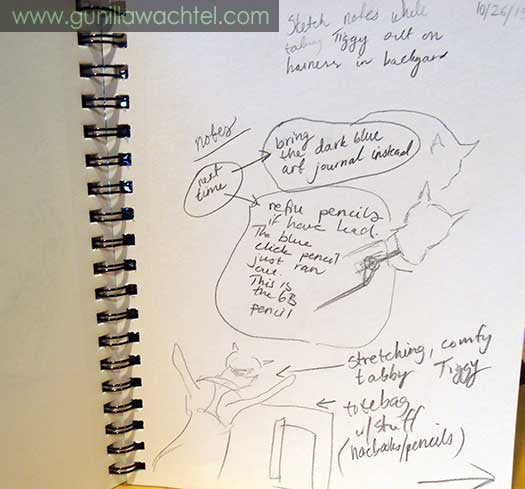 www.gunillawachtel.com
Sketch notes while
taking Tiggy out on
harness in backyard
10/26/1
notes
next
time
bring
the dark blue
art journal instead
refill pencils
if have lead.
The blue
click pencil
just ran
out.
This is
the 6B
pencil
stretching, comfy
tabby Tiggy
totebag
w/stuff
(notebooks/pencils)